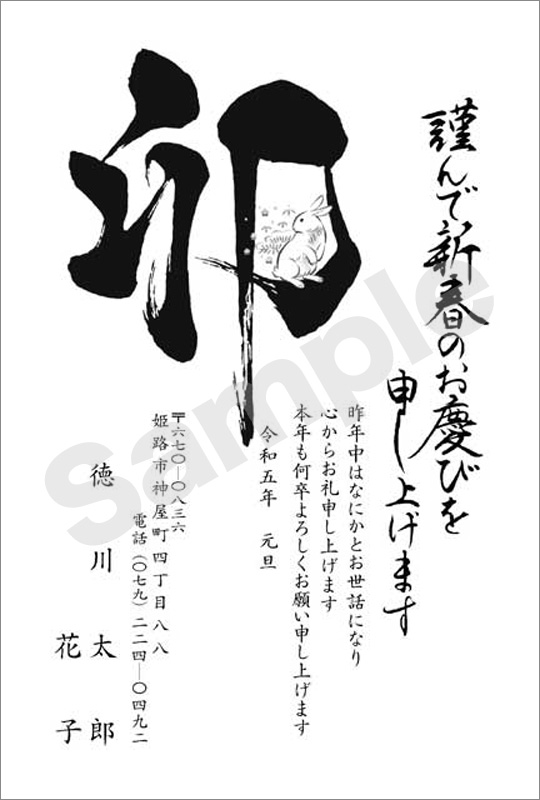 謹んで新春のお慶びを
申し上げます
卯
昨年中はなにかとお世話になり
心からお礼申し上げます
本年も何卒よろしくお願い申し上げます
令和五年 元旦
〒六七〇―〇八三六
姫路市神屋町四丁目八八
電話(〇七九)二二四―〇四九二
徳川 太郎
花子
Sample